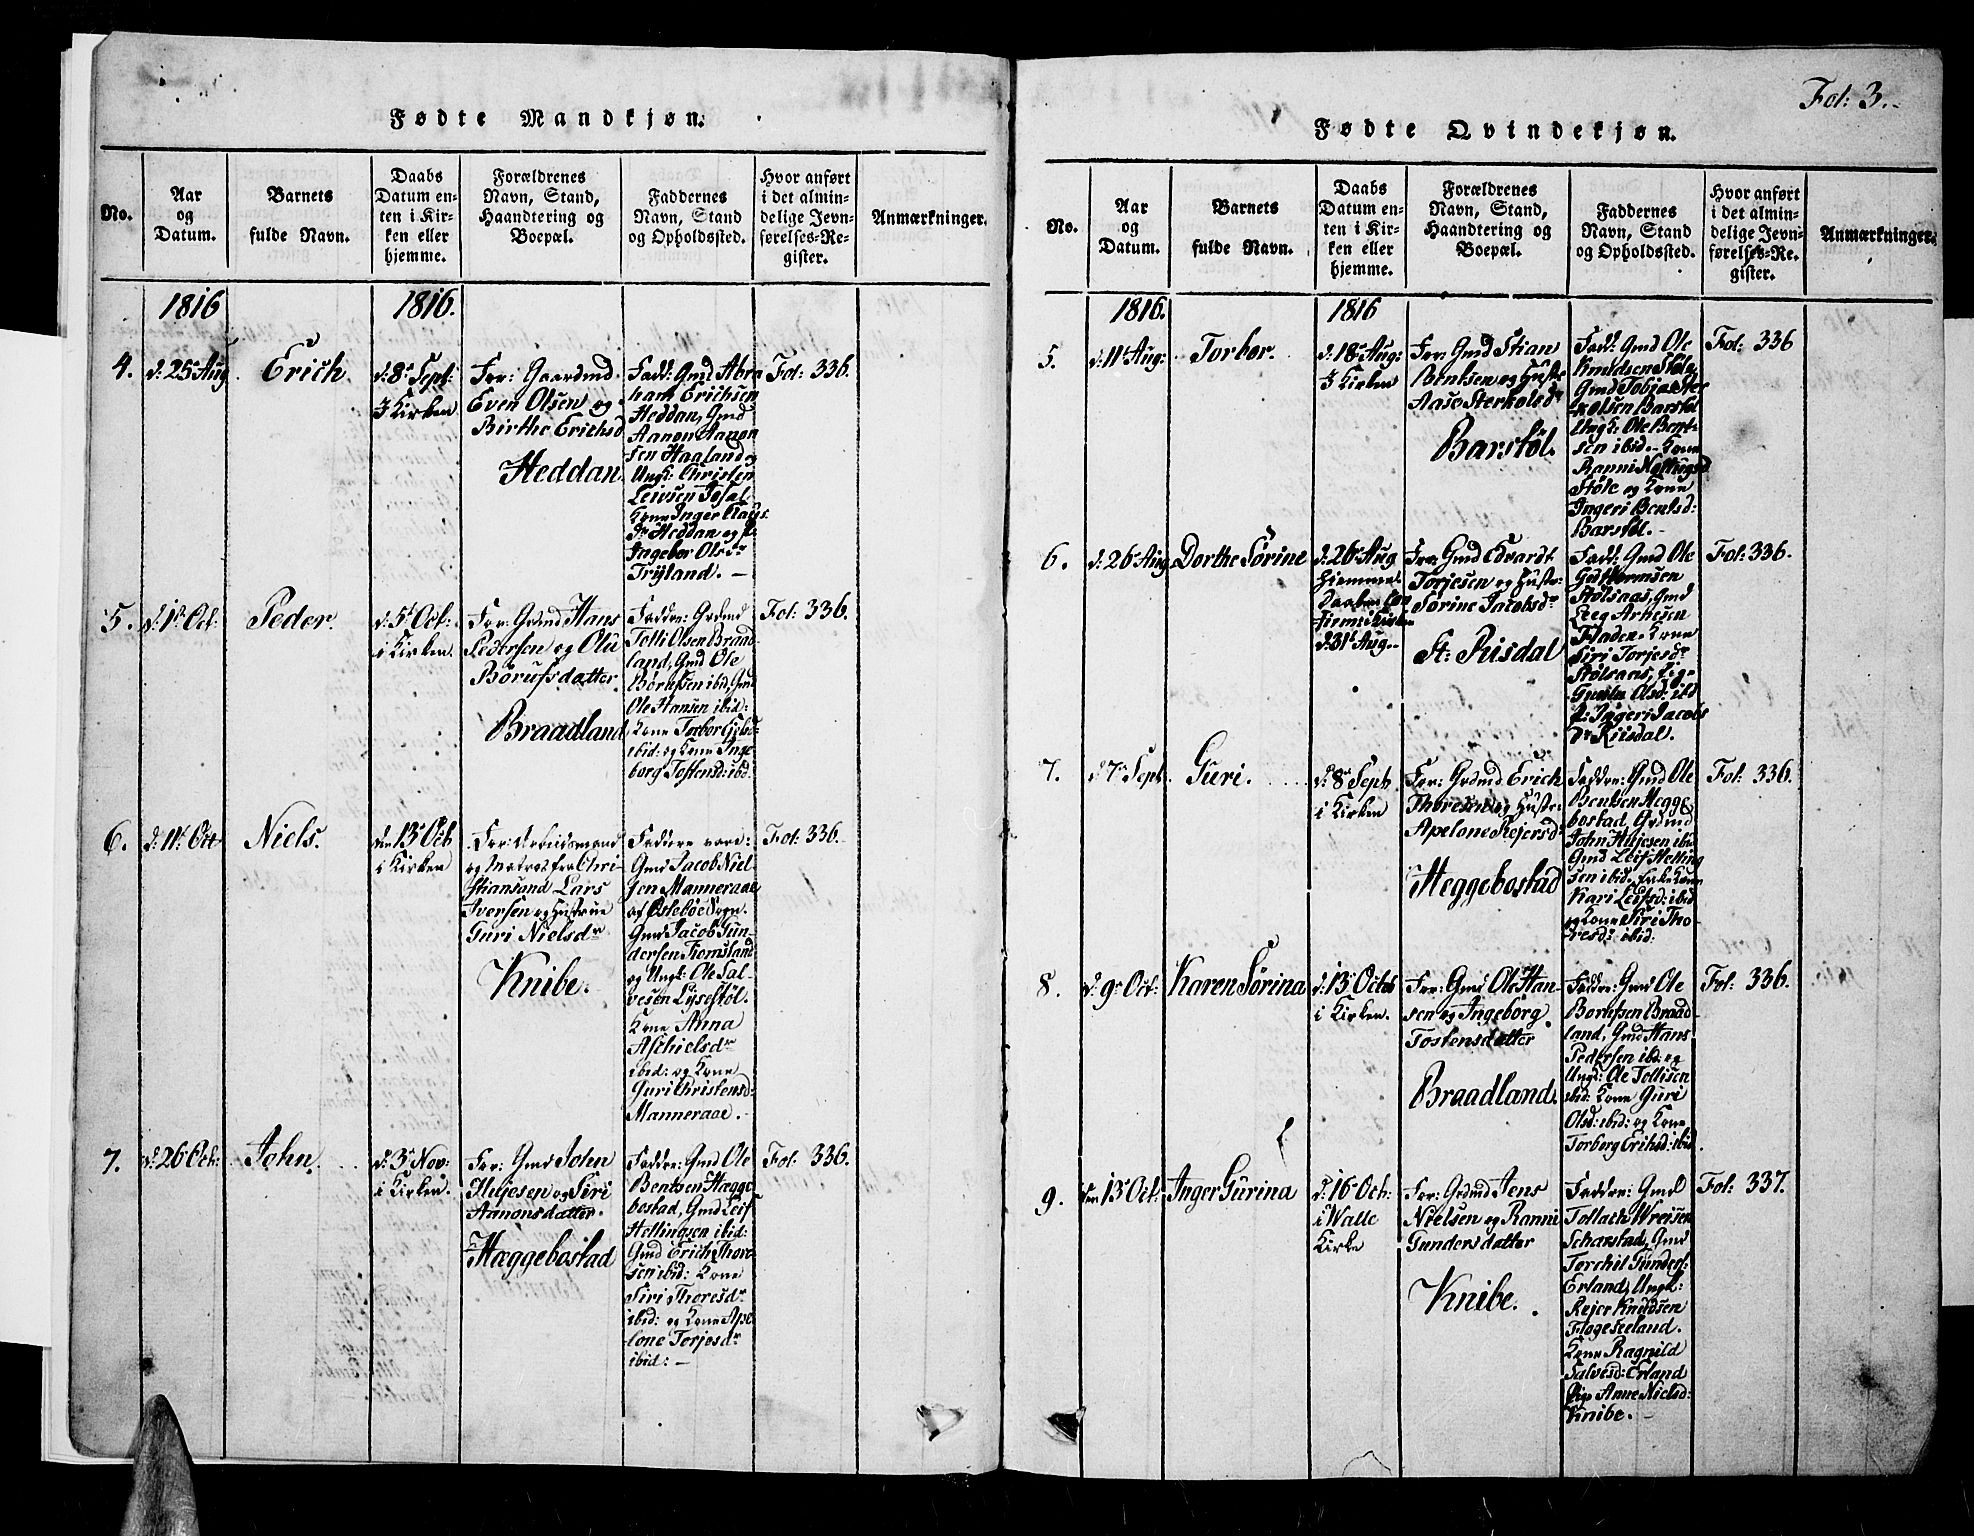 Fødte Mandkjøn.
No.
Aar
og
Datum.
Barnets
fulde Navn.
Daabs
Datum en-
ten i Kir-
ken eller
hjemme.
Forældrenes
Navn, Stand,
Haandtering og
Boepæl.
Faddernes
Navn, Stand
og Opholdssted.
Hvor anført
i det almin-
delige Jevn-
førelses-Re-
gister.
Anmærkninger.
1816
1816.
4.
d: 25 Aug
Erich
d: 8 Sept:
I Kirken
For: Gaardmd
Even Olsen og
Birthe Erichsd
Heddan
Fadd: Gmd Abra
ham Erichsen
Heddan, Gmd
Aanon Aanon
sen Haaland og
Ungk: Christen
Leivsen
Kone Inger
Heddan og
Ingebor Olsdr
Tryland. -
Fol: 336.
5.
d: 1 Oct:
Peder.
d: 5 Oct:
i Kirken.
For: Grdmd Hans
Pedersen og Olu
Børufsdatter.
Braadland
Faddre: Grdmd
Tolli Olsen Braad-
land, Gmd Ole
Børufsen ibid, Gmd
Ole Hansen ibid:
Kone Torbor
ibid: og Kone Inge
borg Tostensd: ibd
Fol: 336.
6.
d: 11 Oct
Niels.
den 13 Oct
i Kirken
For: Arbeidsmand
og Matros fra Chri-
stiansand Lars
Iversen og Hustrue
Guri Nielsdr
Knibe.
Faddere vare:
Gmd Jacob Niel-
sen Manneraae
af Øslebøe Sogn.
Gmd Jacob Gun-
dersen Tromsland
og Ungk: Ole Sal-
vesen Lysestøl.
Kone Anna
Aschielsdr
ibid: og Kone
Guri Christensd:
Manneraae. -
Fol: 336.
7.
d: 26 Oct:
John.
d: 3 Nov:
i Kirken.
For: Gmd John
Hujesen og Siri
Aanonsdatter.
Hæggebostad
Faddre: Gmd Ole
Bentsen Hægge
bostad, Gmd Leif
Hellingsen ibid:
Gmd Erich Thore
sen ibid: Kone
Siri Thoresdr
ibid: og Kone Ape
lone Torjesdr
ibid: -
Fol: 336.
Fol: 3.
Fødte Qvindekjøn.
No.
Aar
og
Datum.
Barnets
fulde Navn.
Daabs
Datum en-
ten i Kir-
ken eller
hjemme.
Forældrenes
Navn, Stand,
Haandtering og
Boepæl.
Faddernes
Navn, Stand
og Opholdssted.
Hvor anført
i det almin-
delige Jevn-
førelses-Re-
gister.
Anmærkninger.
1816.
1816
5.
d: 11 Aug:
Torbor.
d: 18 Aug:
I Kirken
For: Gmd Stian
Bentsen og Hustr:
Aase Sterkolsdr
Barstøl.
Fadd: Gmd Ole
Knudsen Støle
Gmd Tobias
Barstøl
Ungk: Ole Bent-
sen ibid. Kone
Ranni
Støle og Kone
Ingeri Bentsd:
Barstøl. -
Fol: 336
6.
d: 26 Aug
Dorthe Sørine
d: 26 Aug
Hiemme
Daaben Con
firm: i Kirken
d: 31 Aug.
For: Gmd Evardt
Torjesen og Hustr:
Sørine Jacobsdr
St: Riisdal
Fadd: Gmd Ole
Stølsaas, Gmd
Leeg Arnesen
Fladen. Kone
Siri Torjesdr
Stølsaas, Pig-
Gunild Olsd: ibd
P: Ingeri Jacobs
Dr Riisdal.
Fol: 336.
7.
d: 7 Sept
Guri.
d: 8 Sept
i Kirken
For: Grdmd Erich
Thoresen og Hustr:
Apelone Rejersdr
Heggebostad
Faddre: Gmd Ole
Bentsen Hegge
bostad, Grdmd
John Hujesen ibid
Gmd Leif Helling
sen ibid. Enke Kone
Kari Leifsd: ibid
og Kone Siri Tho-
resd: ibid:
Fol: 336.
8.
d: 9 Oct:
Karen Sørina
d: 13 Octob
i Kirken.
For: Gmd Ole Han-
sen og Ingeborg
Tostensdatter
Braadland.
Faddre: Gmd Ole
Børufsen Braad-
land, Gmd Hans
Pedersen ibd: og
Ungd: Ole Tollisen
ibid: Kone Guri
Olsd: ibid: og Kone
Torborg Erihsd: ibid.
Fol: 336.
9.
den 13 Oct:
Inger Gurina
d: 16 Oct:
i Walle
Kirke
For: Grdmd Jens
Nielsen og Ranni
Gundersdatter
Knibe.
Faddre: Gmd
Tollach Wreisen
Scharstad, Gmd
Torchil Gunders:
Erland, Ungk:
Rejer Knudsen
Flogeseeland.
Kone Ragnild
Salvesd: Erland
Pige Anne Nielsd:
Knibe. -
Fol: 337.